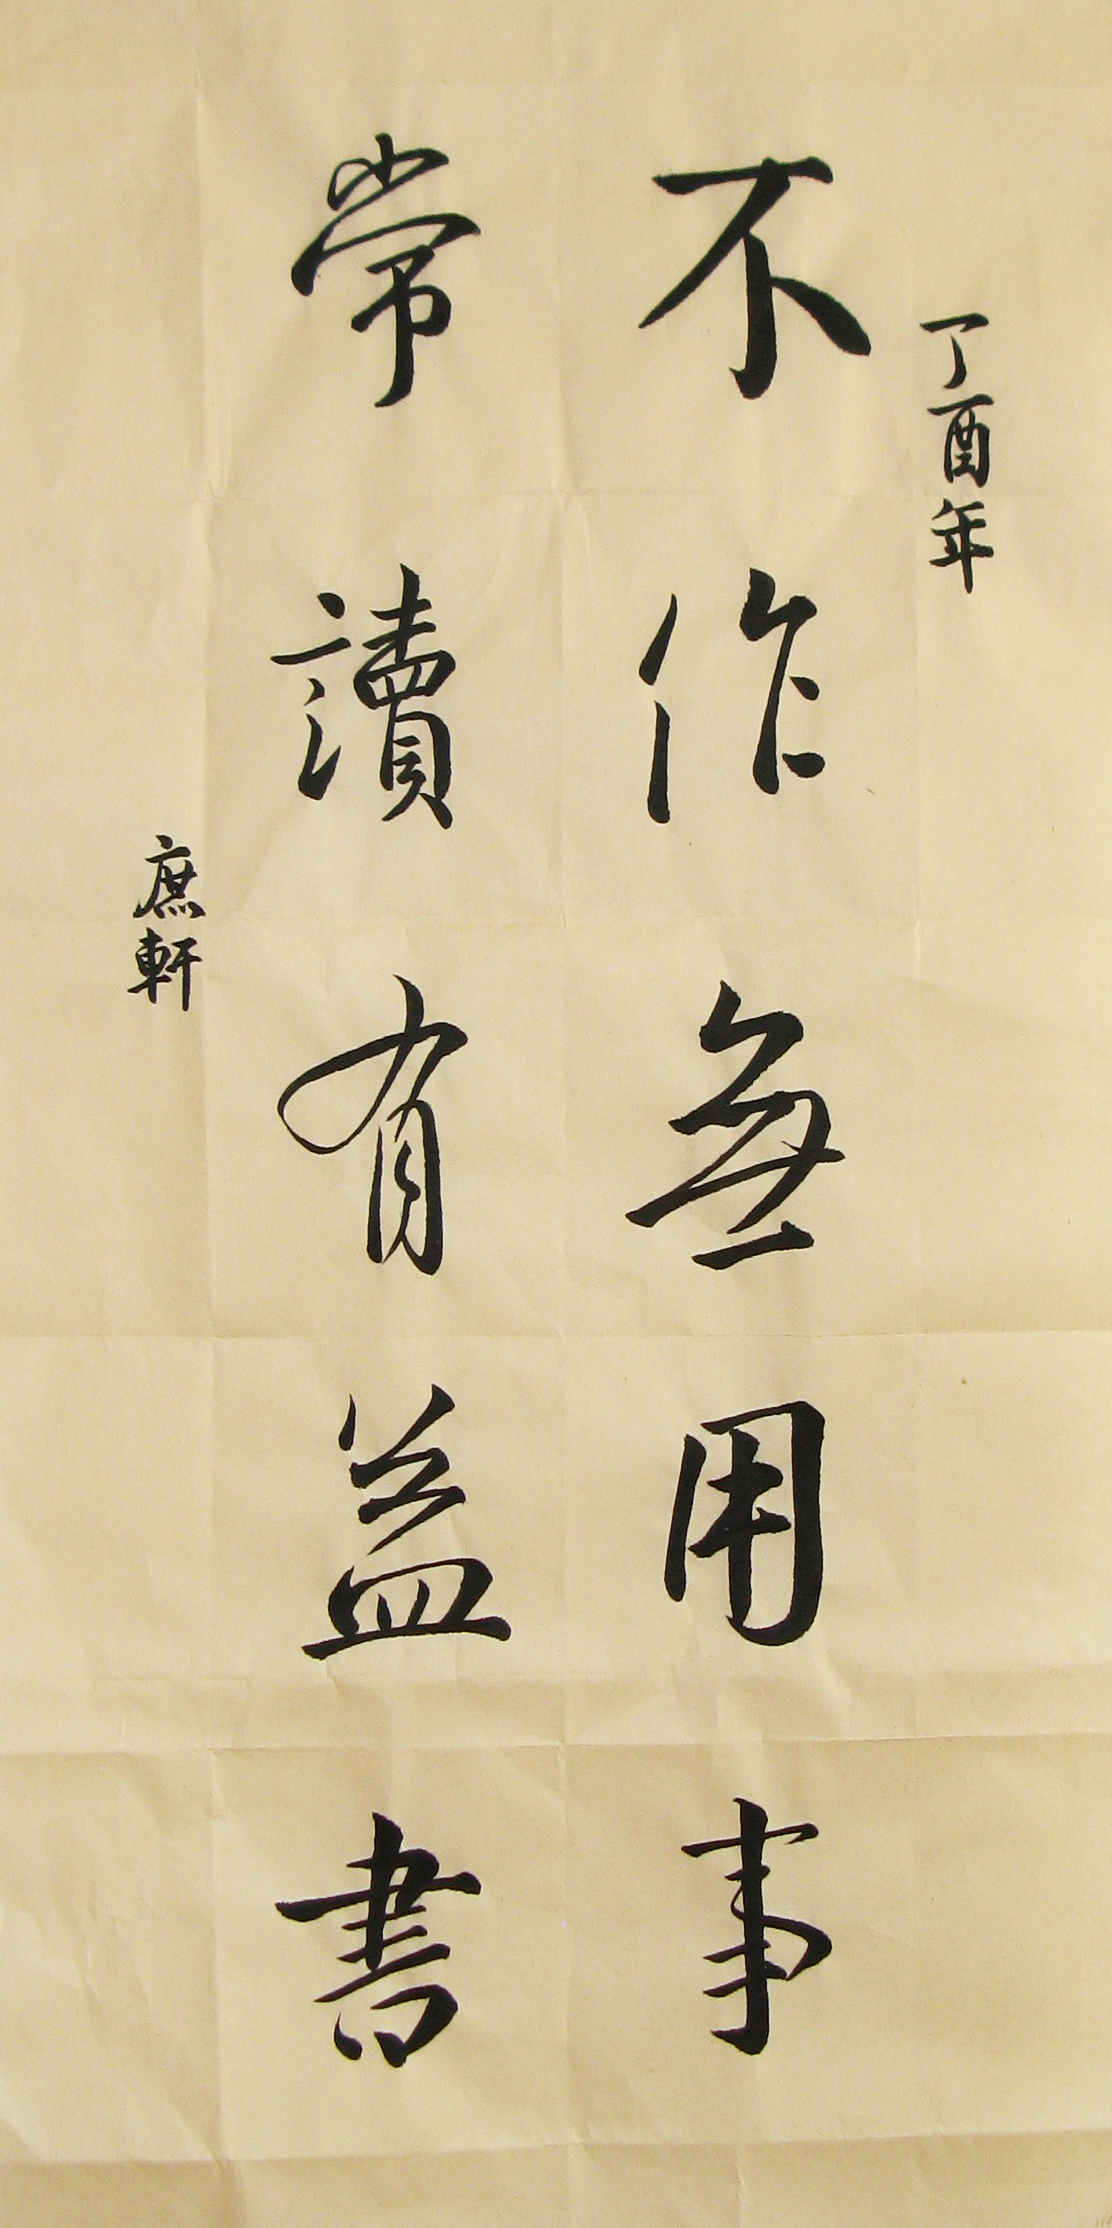 丁酉年
不作無用事
常讀有益書
庶軒